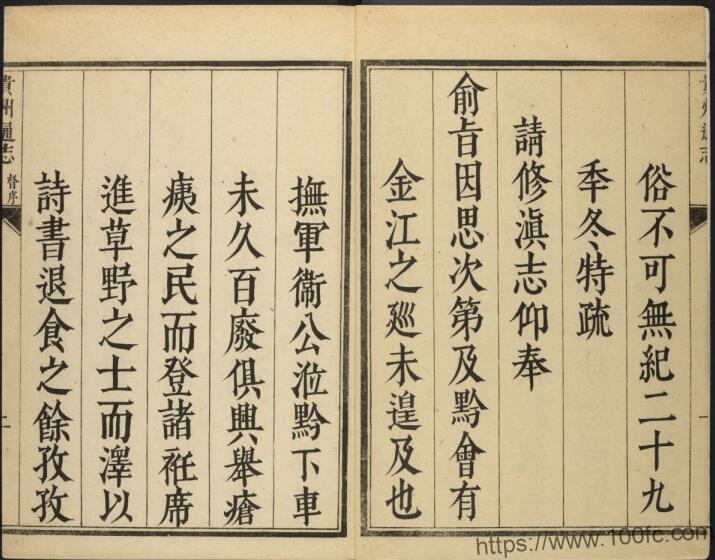 俗不可無紀二十九
秊冬特疏
請修滇志仰奉
俞旨因思次第及黔會有
金江之廵未遑及也
撫軍衞公涖黔下車
未久百廢俱興舉瘡
痍之民而登諸袵席
進草野之士而澤以
詩書退食之餘孜孜
貴州通志
督序
二
https://www.100fc.com